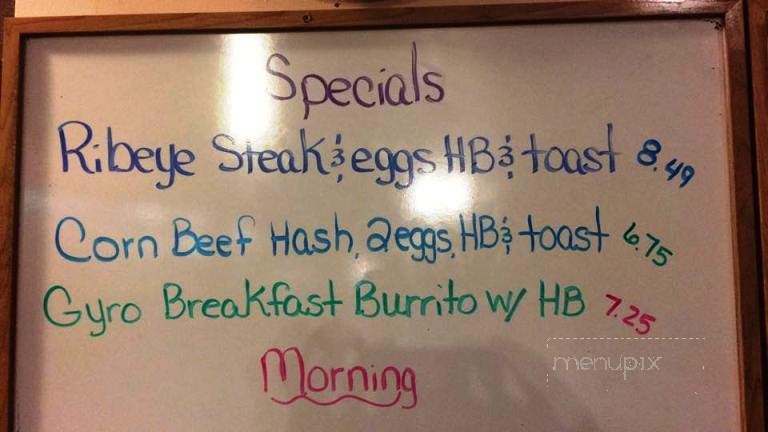 Specials
Ribeye Steak & eggs HB & toast 8.49
Corn Beef Hash, 2 eggs, HB & toast 6.75
Gyro Breakfast Burrito w/ HB 7.25
menupix
Morning